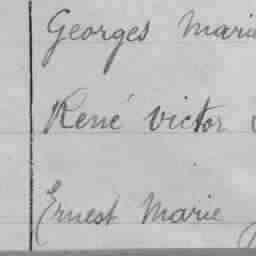 Georges Marie
René Victor
Ernest Marie